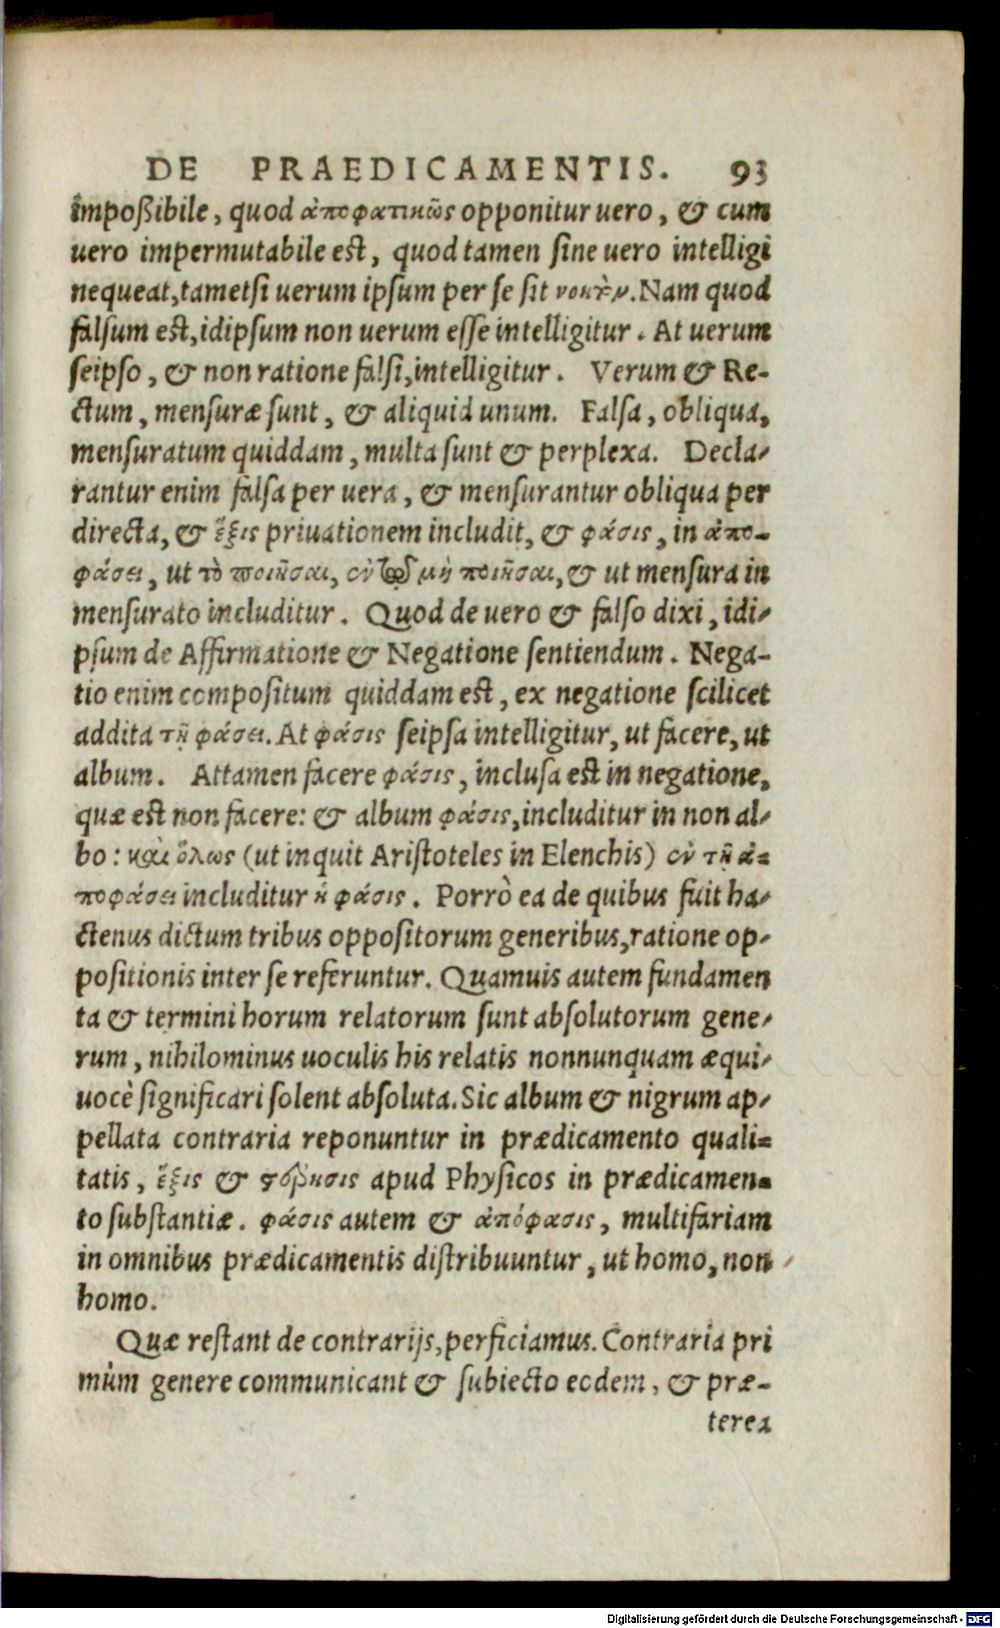 DE PRAEDICAMENTIS. 93
impoßibile, quod ἀποφατικῶς opponitur uero, & cum
uero impermutabile est, quod tamen sine uero intelligi
nequeat, tametsi uerum ipsum per se sit νοητόν. Nam quod
falsum est, idipsum non uerum esse intelligitur. At uerum
seipso, & non ratione falsi, intelligitur. Verum & Re-
ctum, mensuræ sunt, & aliquid unum. Falsa, obliqua,
mensuratum quiddam, multa sunt & perplexa. Decla-
rantur enim falsa per uera, & mensurantur obliqua per
directa, & ἕξις priuationem includit, & φάσις, in ἀπο-
φάσει, ut τὸ ποιῆσαι, ἐν τῷ μὴ ποιῆσαι, & ut mensura in
mensurato includitur. Quod de uero & falso dixi, idi-
psum de Affirmatione & Negatione sentiendum. Nega-
tio enim compositum quiddam est, ex negatione scilicet
addita τῇ φάσει. At φάσις seipsa intelligitur, ut facere, ut
album. Attamen facere φάσις, inclusa est in negatione,
quæ est non facere: & album φάσις, includitur in non al-
bo: καὶ ὅλως (ut inquit Aristoteles in Elenchis) ἐν τῇ ἀ-
ποφάσει includitur ἡ φάσις. Porrò ea de quibus fuit ha-
ctenus dictum tribus oppositorum generibus, ratione op-
positionis inter se referuntur. Quamuis autem fundamen
ta & termini horum relatorum sunt absolutorum gene-
rum, nihilominus uoculis his relatis nonnunquam æqui-
uocè significari solent absoluta. Sic album & nigrum ap-
pellata contraria reponuntur in prædicamento quali-
tatis, ἕξις & στέρησις apud Physicos in prædicamen-
to substantiæ. φάσις autem & ἀπόφασις, multifariam
in omnibus prædicamentis distribuuntur, ut homo, non
homo.
Quæ restant de contrarijs, perficiamus. Contraria pri
mùm genere communicant & subiecto eodem, & præ-
terea
Digitalisierung gefördert durch die Deutsche Forschungsgemeinschaft - DFG